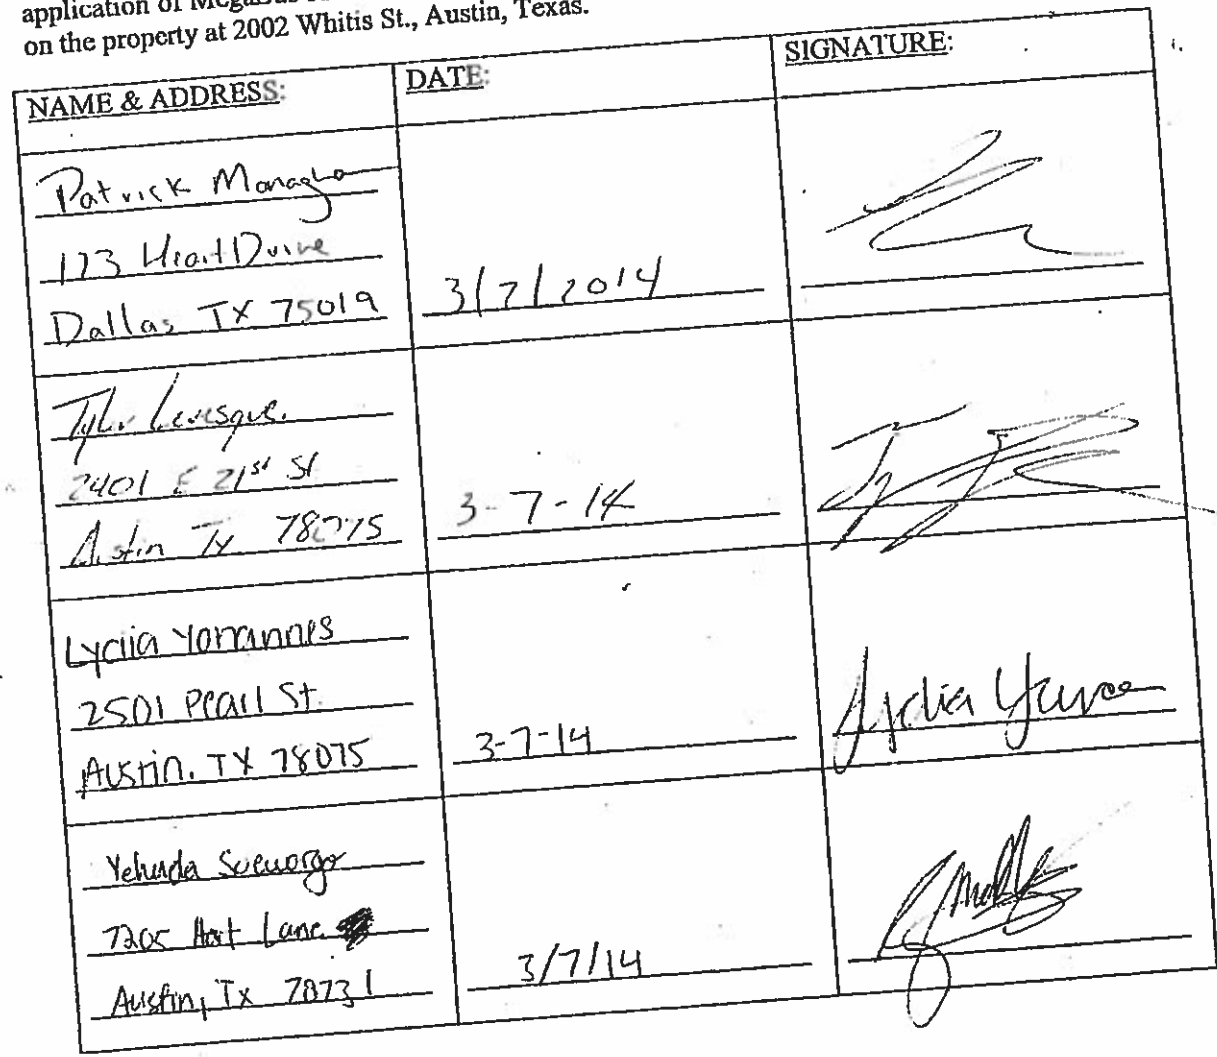 application of
on the property at 2002 Whitis St., Austin, Texas.
NAME & ADDRESS:
DATE:
SIGNATURE:
Patrick
173 Drive
Dallas, TX 75019
3/7/2014
Tyler Levesque
2401 E 21st St
Austin Tx
3-7-14
2501 Pearl St.
Austin, TX 78075
3-7-14
Lydia
Yehuda
7205 Hart Lane
Austin, Tx 78731
3/7/14